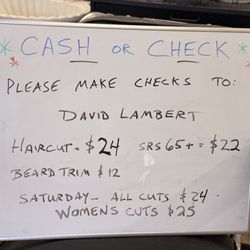 * CASH OR CHECK *
PLEASE MAKE CHECKS TO:
DAVID LAMBERT
HAIRCUT - $24 SRS 65+ = $22
BEARD TRIM $12
SATURDAY - ALL CUTS $24.
WOMENS CUTS $25